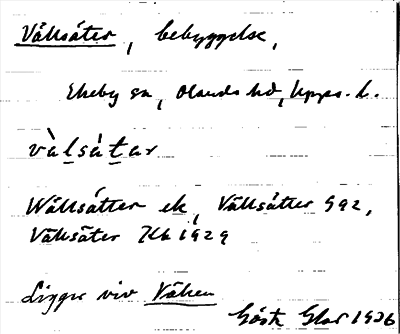 Vällsäter, bebyggelse,
Ekeby sn, Olands hd, Upps. l.
vàlsàtar
Wällsätter ek, Vällsätter 992,
Vällsäter Kb 1929
Ligger vid Välen
Gösta 1936